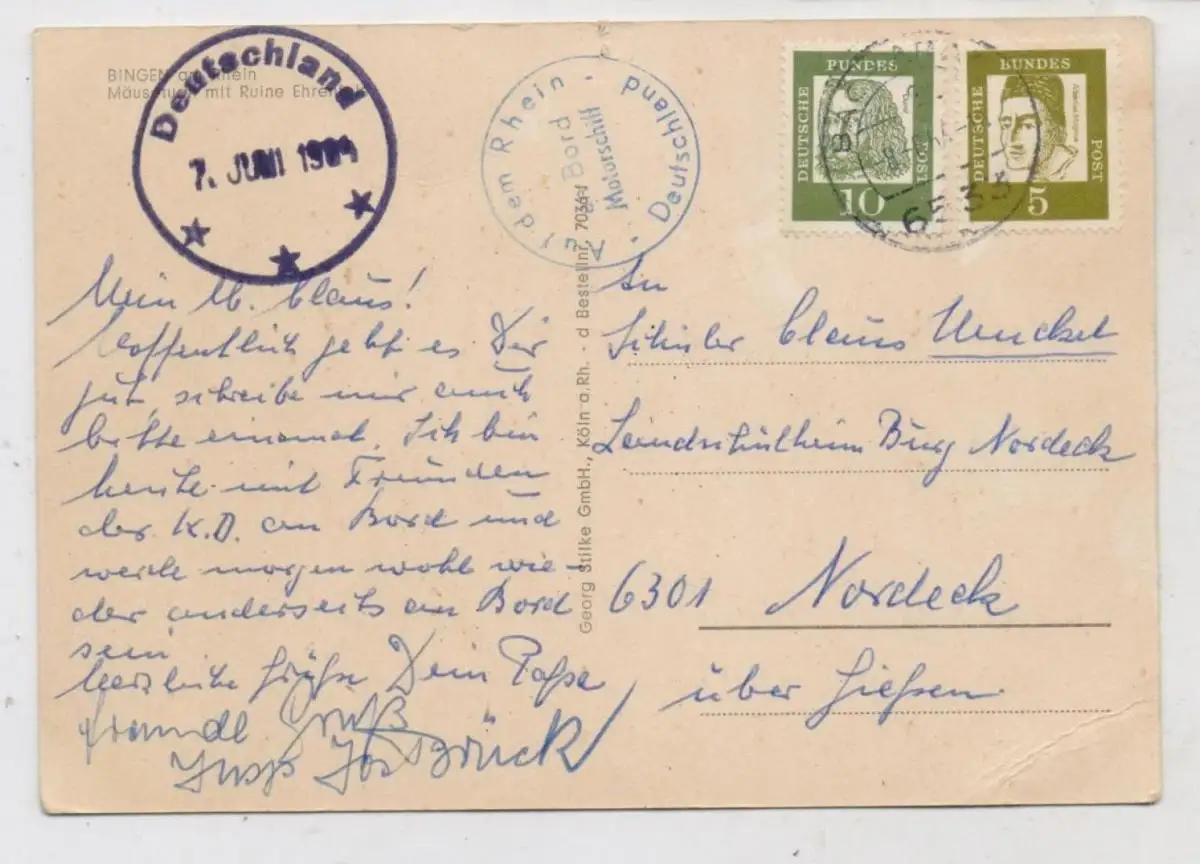 BINGEN am Rhein
Mäuseturm mit Ruine Ehrenfels
Deutschland
7. JUNI 1964
Auf dem Rhein - Deutschland -
an Bord
Motorschiff
DEUTSCHE BUNDES POST
10
DEUTSCHE BUNDES POST
5
6533
Mein lb. Claus!
Hoffentlich geht es Dir
gut, schreibe mir auch
bitte einmal. Ich bin
heute mit Freunden
der K.D. an Bord und
werde morgen wohl wie-
der anderseits an Bord
sein
Herzliche Grüße Dein
freundl Gruß
Brück
Georg Stilke GmbH., Köln a. Rh. - d Bestellnr. 7034/
An
Schüler Claus
Landschulheim Burg Nordeck
6301 Nordeck
über Gießen